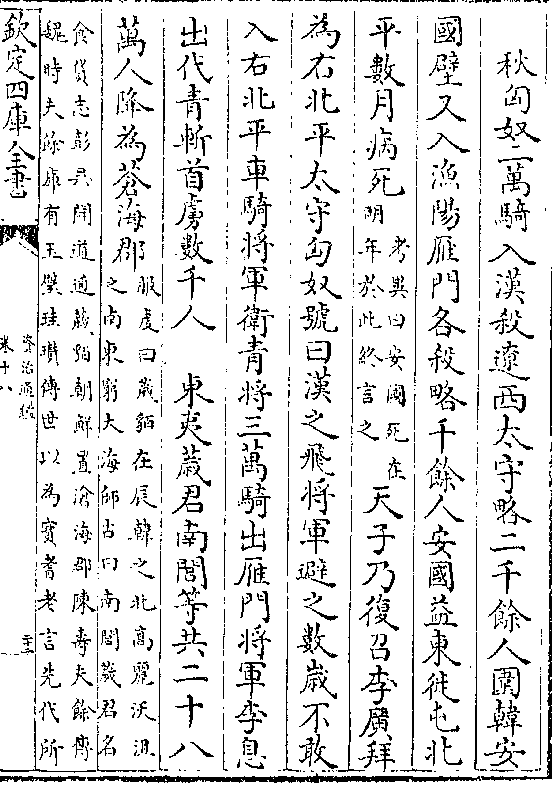 秋匈奴二萬騎入漢殺遼西太守略二千餘人圍韓安
國壁又入漁陽雁門各殺略千餘人安國益東徙屯北
平數月病死考異曰安國死在明年於此終言之天子乃復召李廣拜
為右北平太守匈奴號曰漢之飛將軍避之數歲不敢
入右北平車騎將軍衛青將三萬騎出雁門將軍李息
出代青斬首虜數千人 東夷薉君南閭等共二十八
萬人降為蒼海郡服虔曰薉貊在辰韓之北高麗沃沮之南東窮大海師古曰南閭薉君名
食貨志彭吳開道通薉貊朝鮮置滄海郡陳壽夫餘傳
魏時夫餘庫有玉璧珪瓚傳世以為寶耆老言先代所
欽定四庫全書
資治通鑑
卷十八
二十三